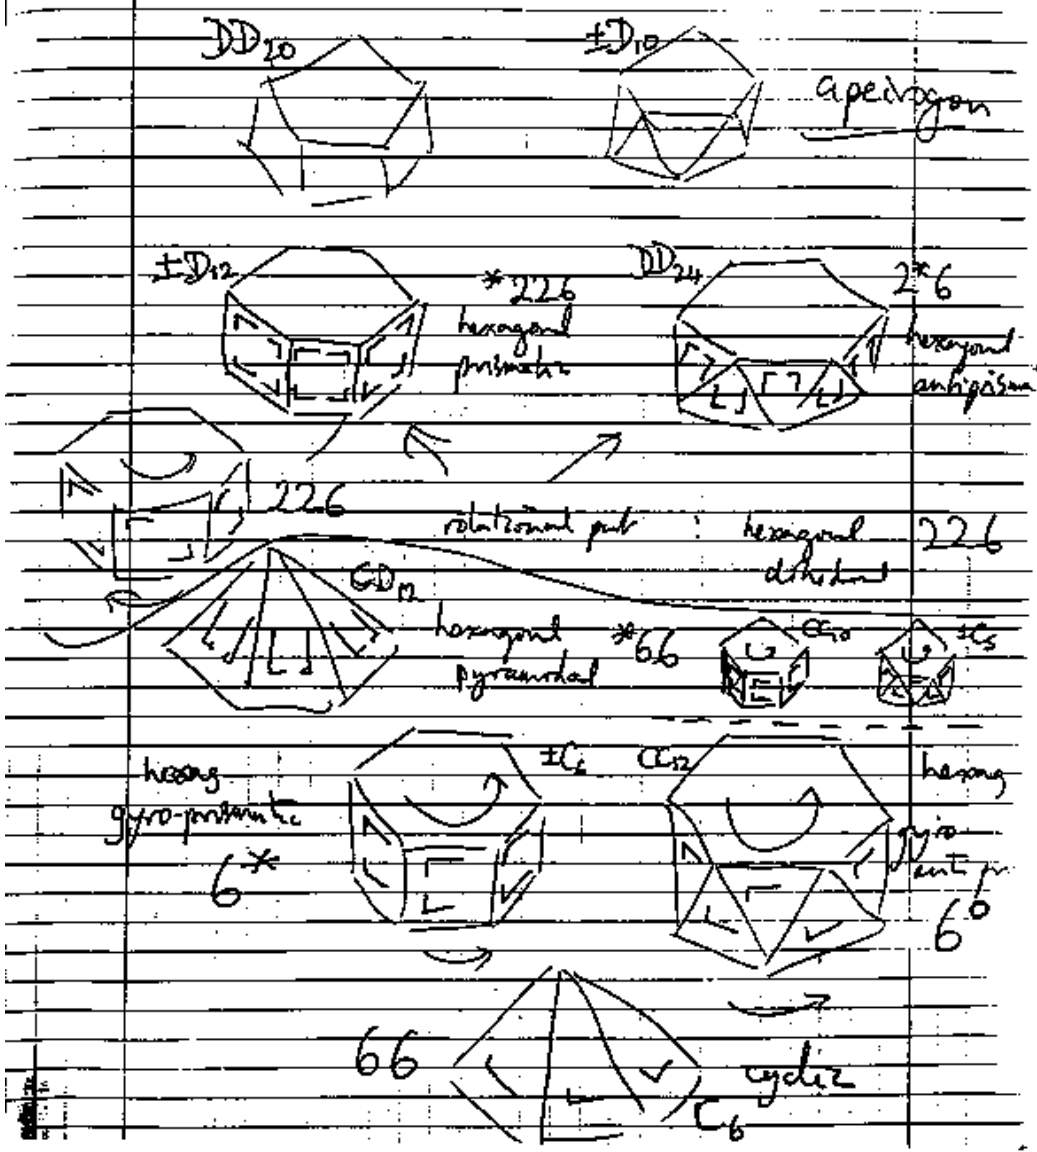 DD20
±D10
apeirogon
±D12
*226
hexagonal
prismatic
DD24
2*6
hexagonal
antiprisma
226
rotational part : hexagonal 226
dihedral
CD12
hexagonal
pyramidal
*66
CC10
±C5
hexag
gyro-prismatic
6*
±C6
CC12
hexag
gyro-
anti pr
6°
66
cyclic
C6